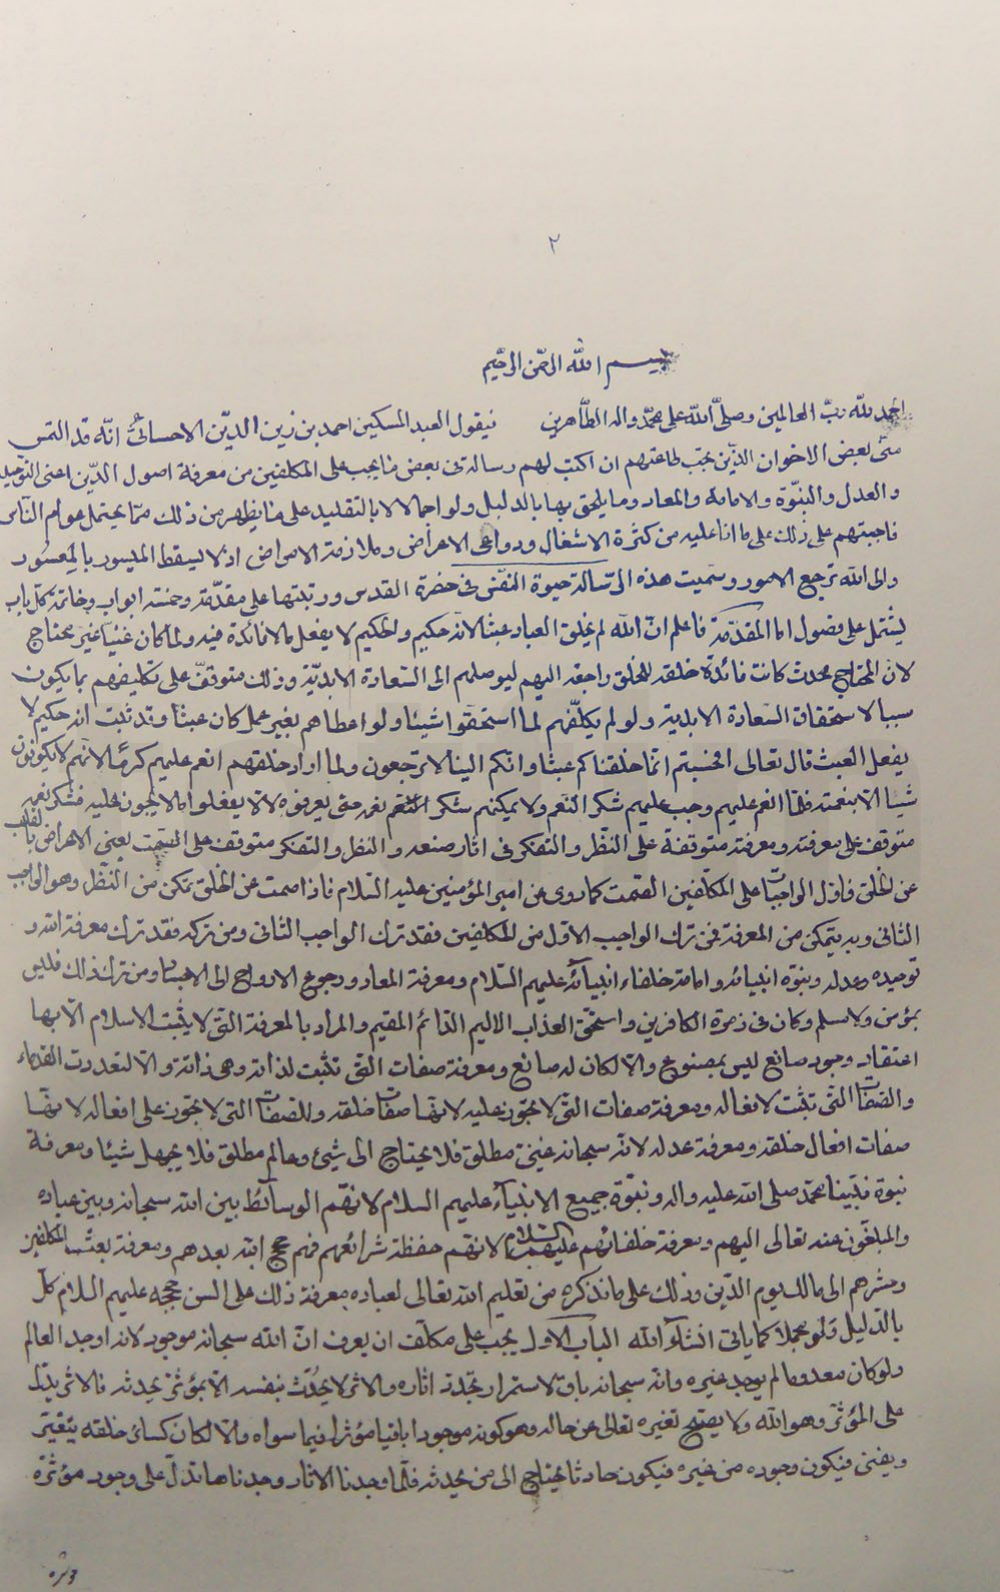 ٢
بسم الله الرحمن الرحيم
الحمد لله رب العالمين وصلى الله على محمد واله الطاهرين فيقول العبد المسكين احمد بن زين الدين الاحسائى انه قد التمس
منى بعض الاخوان الذين تجب طاعتهم ان اكتب لهم رسالة فى بعض ما يجب على المكلفين من معرفة اصول الدين اعنى التوحيد
و العدل و النبوة و الامامة و المعاد وما يلحق بها بالدليل ولو اجمالا لا بالتقليد على ما يظهر من ذلك مما يحتمل عوام الناس
فاجبتهم على ذلك على ما انا عليه من كثرة الاشغال ودواعى الاعراض وملازمة الامراض اذ لا يسقط الميسور بالمعسور
والى الله ترجع الامور وسميت هذه الرسالة حيوة النفس فى حضرة القدس ورتبتها على مقدمة وخمسة ابواب وخاتمة كل باب
يشتمل على فصول اما المقدمة فاعلم ان الله لم يخلق العباد عبثا لانه حكيم والحكيم لا يفعل ما لا فائدة فيه ولما كان غنيا غير محتاج
لان المحتاج محدث كانت فائدة خلقه للخلق راجعة اليهم ليوصلهم الى السعادة الابدية وذلك متوقف على تكليفهم بما يكون
سببا لاستحقاق السعادة الابدية ولو لم يكلفهم لما استحقوا شيئا ولو اعطاهم بغير عمل كان عبثا وقد ثبت انه حكيم لا
يفعل العبث قال تعالى افحسبتم انما خلقناكم عبثا وانكم الينا لا ترجعون ولما اراد خلقهم انعم عليهم كرما لانهم لا يكونون
شيئا الا بنعمته فلما انعم عليهم وجب عليهم شكر النعم ولا يمكنهم شكر المنعم بنعمه حتى يعرفوه لئلا يفعلوا ما لا يجوز عليه فشكر نعمه
متوقف على معرفته ومعرفته متوقفة على النظر والتفكر فى اثار صنعه و النظر والتفكر متوقف على الصمت يعنى الاعراض بالقلب
عن الخلق فاول الواجبات على المكلفين الصمت كما روى عن امير المؤمنين عليه السلام فاذا صمت عن الخلق تمكن من النظر وهو الواجب
الثانى وبه يتمكن من المعرفة فمن ترك الواجب الاول من المكلفين فقد ترك الواجب الثانى ومن تركه فقد ترك معرفة الله و
توحيده وعدله ونبوة انبيائه وامامة خلفاء انبيائه عليهم السلام ومعرفة المعاد ورجوع الارواح الى الاجساد ومن ترك ذلك فليس
بمؤمن ولا مسلم وكان فى زمرة الكافرين واستحق العذاب الاليم الدائم المقيم والمراد بالمعرفة التى لا يثبت الاسلام الا بها
اعتقاد وجود صانع ليس بمصنوع والا لكان له صانع ومعرفة صفات التى تثبت لذاته وهى ذاته والا لتعددت القدماء
والصفات التى تثبت لافعاله ومعرفة صفات التى لا تجوز عليه لانها صفات خلقه وللصفات التى لا تجوز على افعاله لانها
صفات افعال خلقه ومعرفة عدله لانه سبحانه غنى مطلق فلا يحتاج الى شئ وعالم مطلق فلا يجهل شيئا ومعرفة
نبوة نبينا محمد صلى الله عليه واله ونبوة جميع الانبياء عليهم السلام لانهم الوسائط بين الله سبحانه وبين عباده
والمبلغون عنه تعالى اليهم ومعرفة خلفائهم عليهم السلام لانهم حفظة شرائعهم فهم حجج الله بعدهم ومعرفة بعث المكلفين
وحشرهم الى مالك يوم الدين وذلك على ما نذكره من تعليم الله تعالى لعباده معرفة ذلك على السن حججه عليهم السلام كل
بالدليل ولو مجملا كما ياتى انشاء الله الباب الاول يجب على مكلف ان يعرف ان الله سبحانه موجود لانه اوجد العالم
ولو كان معدوما لم يوجد غيره وانه سبحانه باق لاستمرار تجدد اثاره والاثر لا يحدث بنفسه الا بمؤثر يحدثه فالاثر يدل
على المؤثر وهو الله ولا يصح تغيره تعالى عن حاله وهو كونه موجودا باقيا مؤثرا فيما سواه والا لكان كسائر خلقه يتغير
ويفنى فيكون وجوده من غيره فيكون حادثا يحتاج الى من يحدثه فلما وجدنا الاثار وجدناها تدل على وجود مؤثره